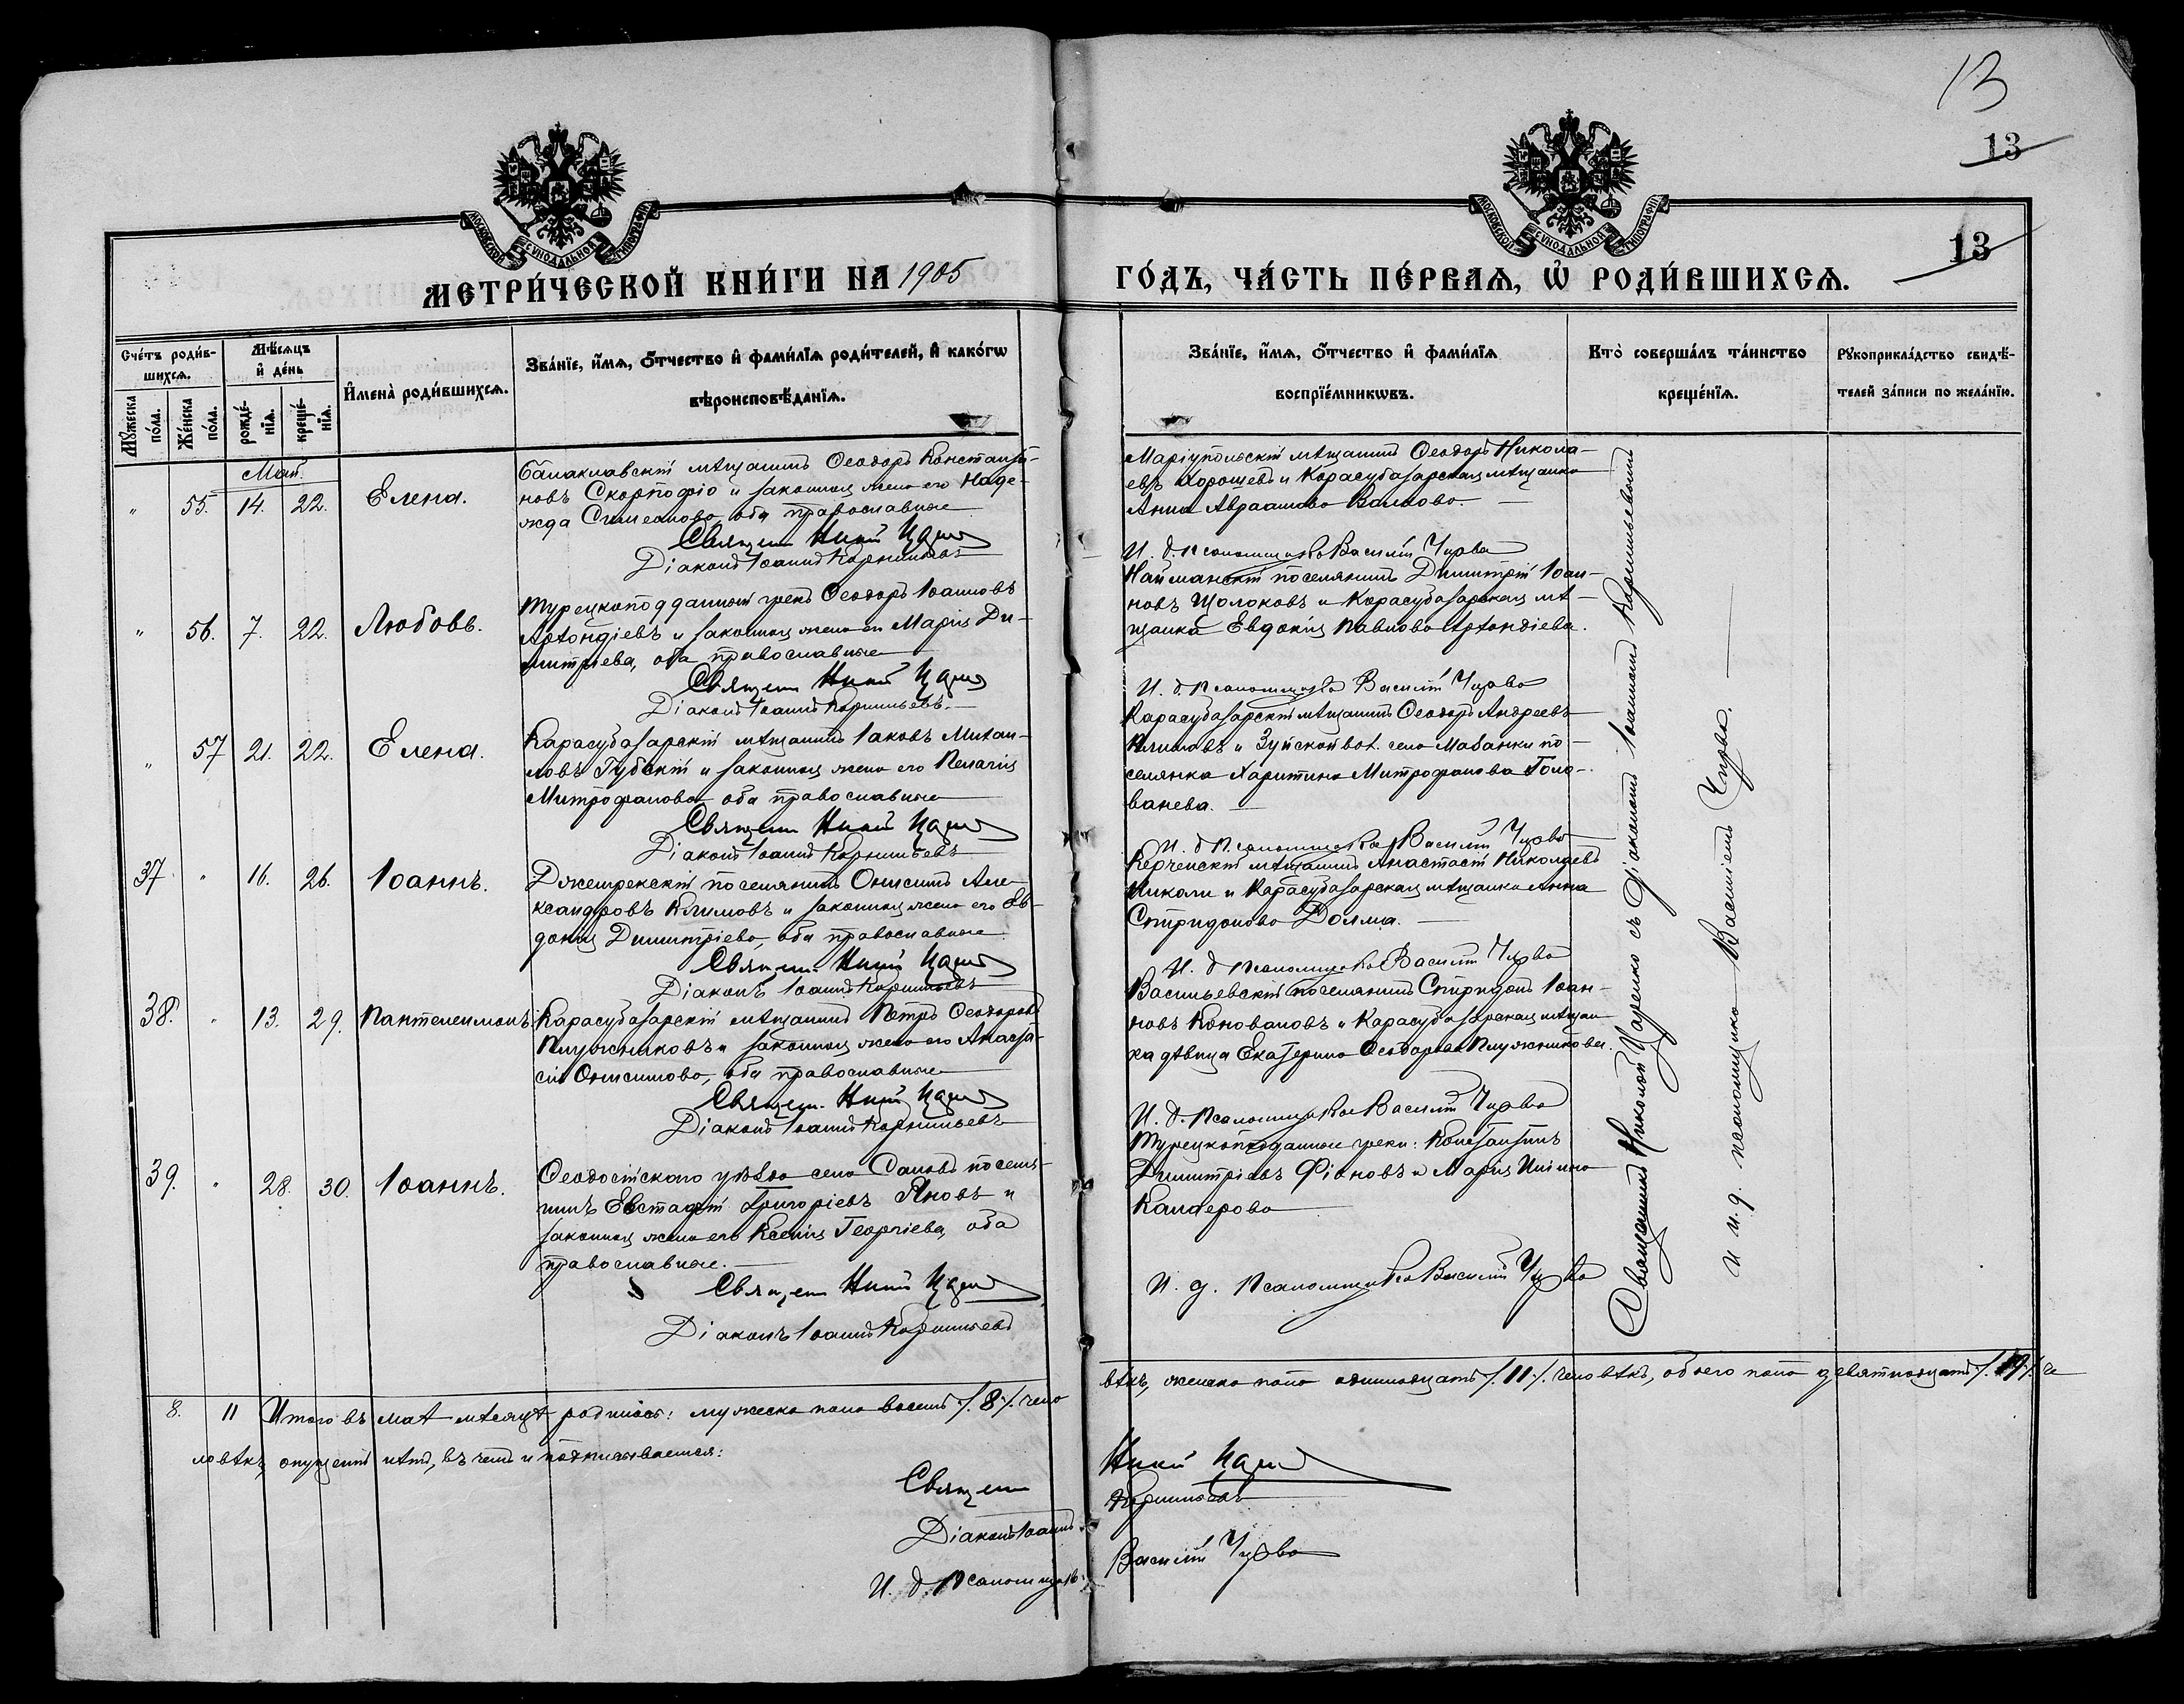 13
13
13
МОСКОВСКОЙ СѴНОДАЛЬНОЙ ТИПОГРАФІИ
МОСКОВСКОЙ СѴНОДАЛЬНОЙ ТИПОГРАФІИ
МЕТРИ́ЧЕСКОЙ КНИ́ГИ НА 1905 ГО́ДЪ, ЧА́СТЬ ПЕ́РВАѦ, Ѡ҆ РОДИ́ВШИХСѦ.
Сче́тъ роди́в-
шихсѧ.
Мꙋ́жеска
по́ла.
Же́нска
по́ла.
Мѣ́сѧцъ
и҆ де́нь
рожде́-
нїѧ.
креще́-
нїѧ.
И҆мена̀ роди́вшихсѧ.
Зва́нїе, и҆́мѧ, ѻ҆́тчество и҆ фами́лїѧ роди́телей, и҆ како́гѡ
вѣроисповѣ́данїѧ.
Зва́нїе, и҆́мѧ, ѻ҆́тчество и҆ фами́лїѧ
воспрїе́мникѡвъ.
Кто̀ соверша́лъ та́инство
креще́нїѧ.
Рꙋкоприкла́дство свидѣ́-
телей за́писи по жела́нїю.
Май.
" 55. 14. 22. Елена.
Балаклавскій мѣщанинъ Ѳеодоръ Константи-
новъ Скорпофіо и законная жена его Наде-
жда Симеонова, оба православные
Священ Ник Цар
Діаконъ Іоаннъ Корнильевъ
Маріупольскій мѣщанинъ Ѳеодоръ Никола-
евъ Хорошевъ и Карасубазарская мѣщанка
Анна Авраамова
И. д. псаломщика Василій Чирва
" 56. 7. 22. Любовь.
Турецкоподданный грекъ Ѳеодоръ Іоанновъ
Архондіевъ и законная жена его Марія Ди-
митріева, оба православные
Священ Ник Цар
Діаконъ Іоаннъ Корнильевъ.
Найманскій поселянинъ Димитрій Іоан-
новъ Щолоковъ и Карасубазарская мѣ-
щанка Евдокія Павлова Архондіева.
И. д. псаломщика Василій Чирва
" 57 21. 22. Елена.
Карасубазарскій мѣщанинъ Іаковъ Михаи-
ловъ Губскій и законная жена его Пелагія
Митрофанова оба православные
Священ Ник Цар
Діаконъ Іоаннъ Корнильевъ
Карасубазарскій мѣщанинъ Ѳеодоръ Андреевъ
Климовъ и Зуйской вол. села Мазанки по-
селянка Харитина Митрофанова Голо-
ванева.
И. д. псаломщика Василій Чирва
37 " 16. 26. Іоаннъ.
Джемрекскій поселянинъ Онисимъ Але-
ксандровъ Климовъ и законная жена его Ев-
докія Димитріева, оба православные
Священ Ник Цар
Діаконъ Іоаннъ Корнильевъ
Керченскій мѣщанинъ Анастасій Николаевъ
Николи и Карасубазарская мѣщанка Анна
Спиридонова
И. д. псаломщика Василій Чирва
38. " 13. 29. Пантелеимонъ.
Карасубазарскій мѣщанинъ Петръ Ѳеодоровъ
Плужниковъ и законная жена его Анаста-
сія Онисимова, оба православные
Священ. Ник Цар
Діаконъ Іоаннъ Корнильевъ
Васильевскій поселянинъ Спиридонъ Іоан-
новъ Коноваловъ и Карасубазарская мѣщан-
ка дѣвица Екатерина Ѳеодорова Плужникова.
И. д. псаломщика Василій Чирва
39. " 28. 30. Іоаннъ.
Ѳеодосійскаго уѣзда села поселя-
нинъ Евстафій Григоріевъ Яновъ и
законная жена его Ксенія Георгіева, оба
православные.
Священ Ник Цар
Діаконъ Іоаннъ Корнильевъ
Турецкоподданные греки: Константинъ
Димитріевъ Фіоновъ и Марія
И. д. псаломщика Василій Чирва
Священникъ Николай Царенко съ діакономъ Іоанномъ Корнильевымъ
и и. д. псаломщика Василіемъ Чирва.
8. 11 Итого въ маѣ мѣсяцѣ родилось: мужеска пола восемь /. 8 ./. чело
вѣкъ, женска пола одиннадцать /. 11 ./. человѣкъ, обоего пола девятнадцать /. 19 ./. че
ловѣкъ, опущеній нѣтъ, въ чемъ и подписываемся:
Священ Ник Цар
Діаконъ Іоаннъ Корнильевъ
И. д. псаломщика Василій Чирва